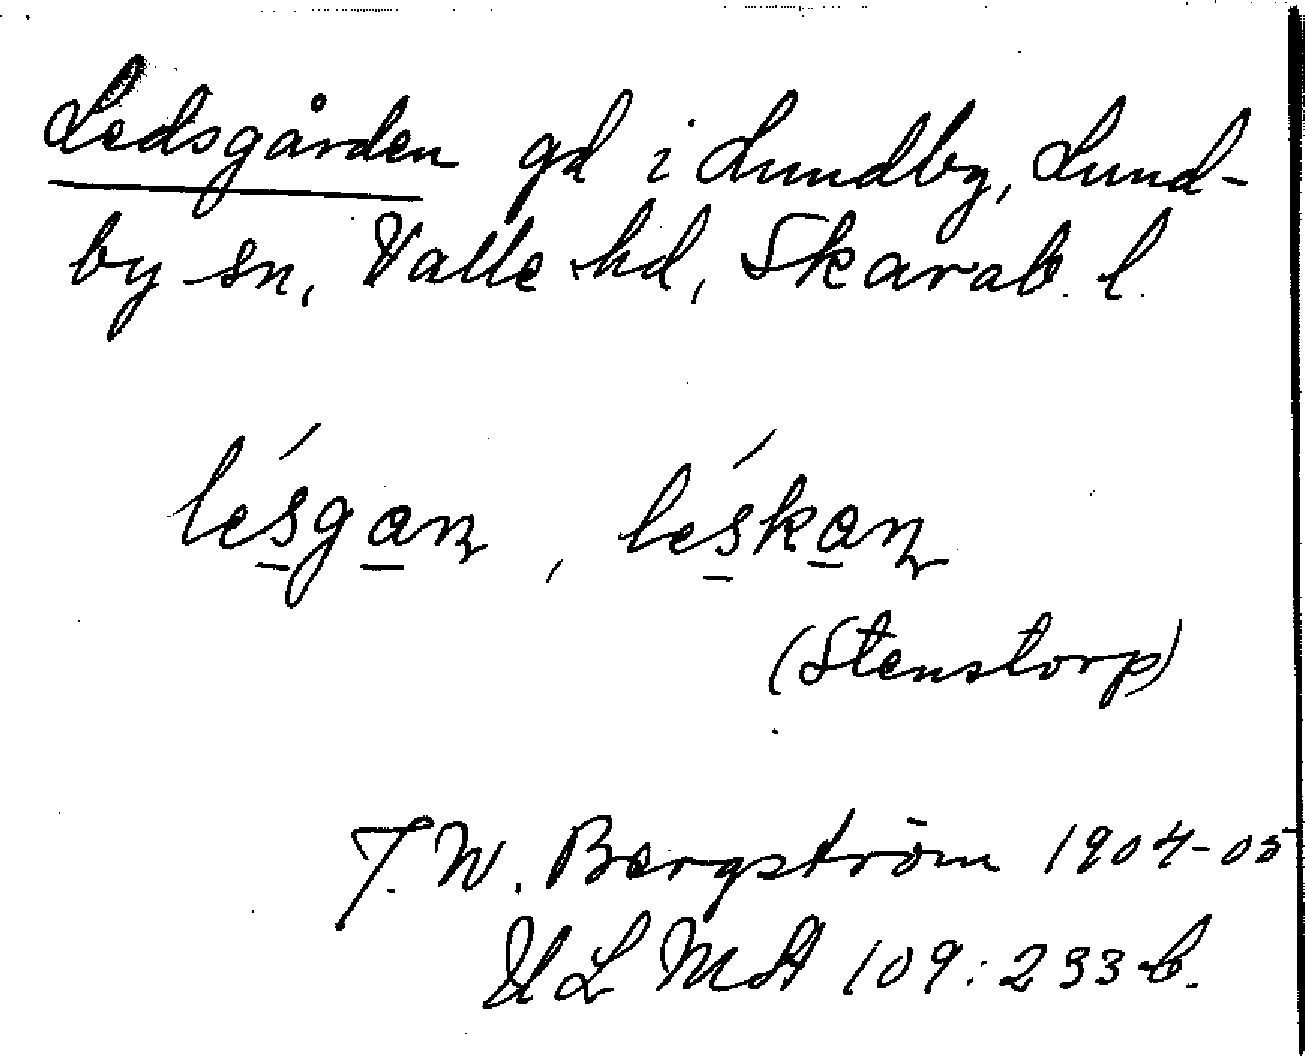 Ledsgården gd i Lundby, Lund-
by sn, Valle hd, Skarab. l.
lésgan, léskan
(Stenstorp)
J. W. Bergström 1904-05
ULMA 109:233 b.